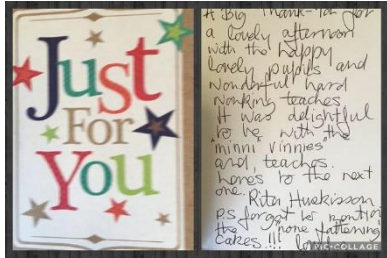 Just
For
You
A Big Thank-You for
a lovely afternoon
with the happy
lovely pupils and
wonderful hard
working teaches.
It was delightful
to be with the
"minni vinnies"
and, teaches.
heres to the next
one.
Rita Huskisson
P.S forgot to mention
the "none fattening
cakes !!!
PIC•COLLAGE